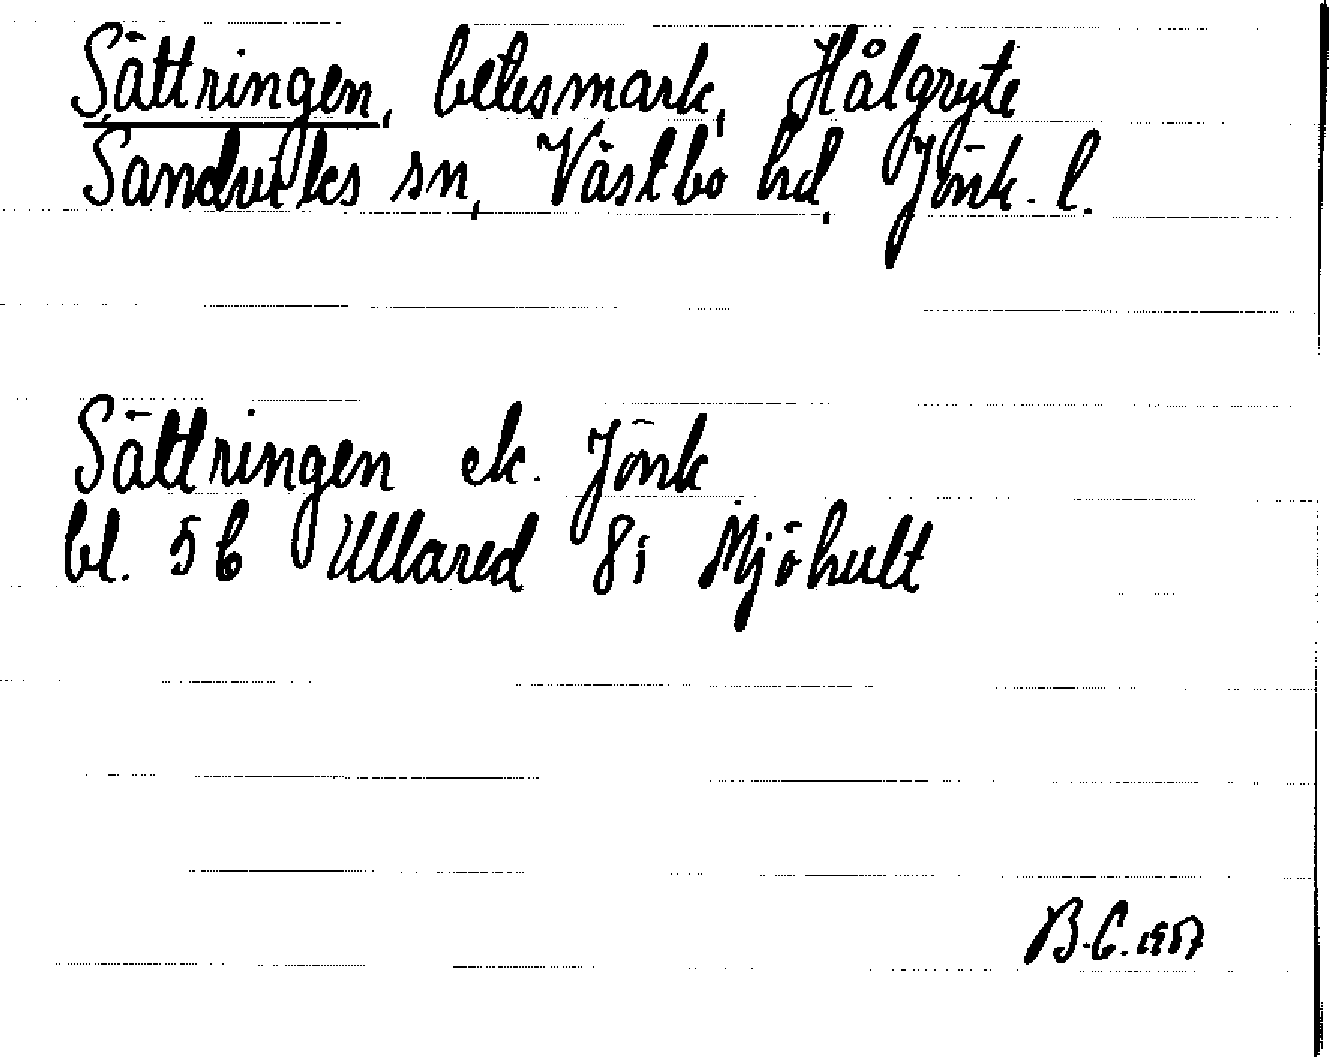 Sättringen, betesmark, Hålgryte
Sandviks sn, Västbo hd, Jönk. l.
Sättringen ek. Jönk
bl. 5 6 Ullared 8i Mjöhult
B.C. 1957